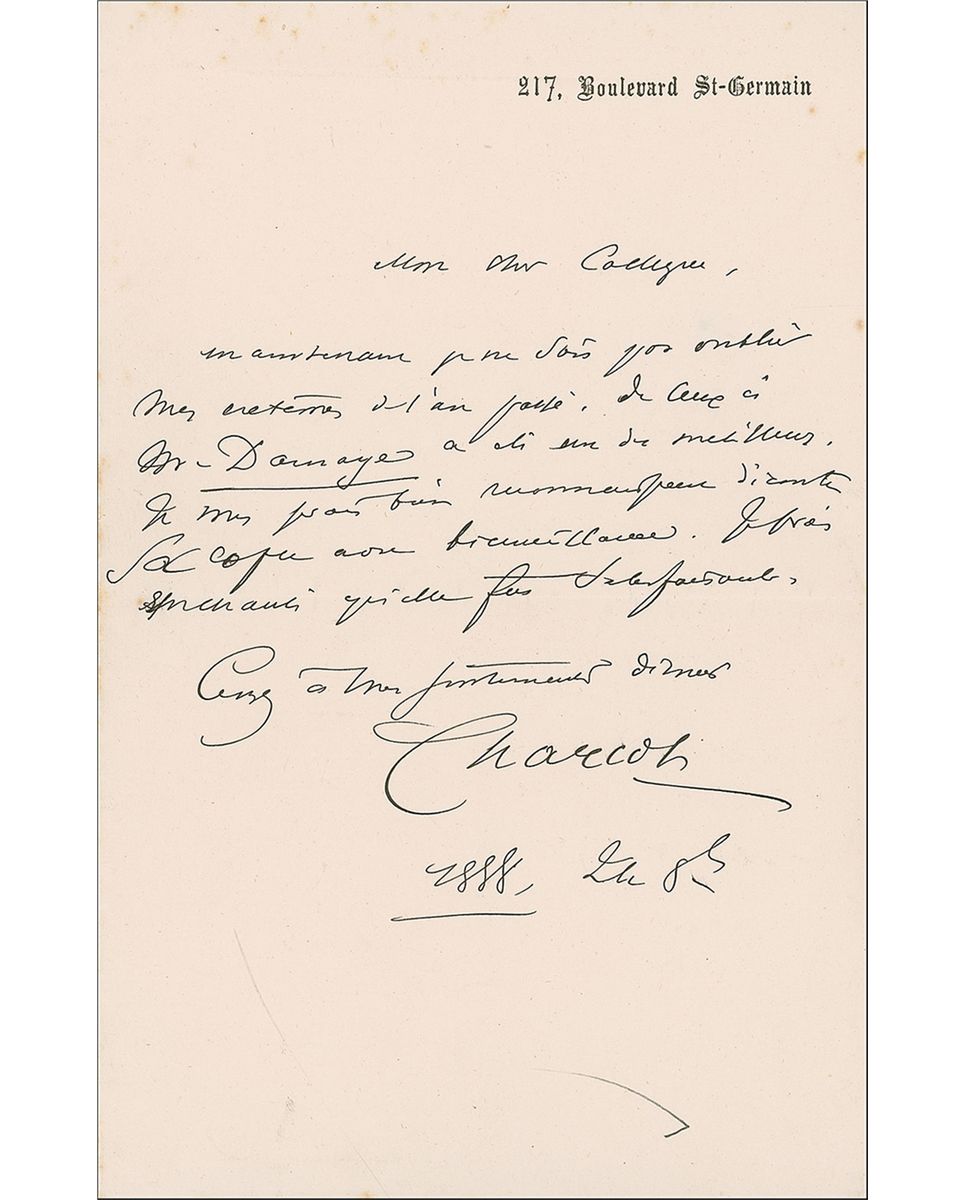 217, Boulevard St-Germain
Mon cher Collègue,
maintenant je ne dois pas oublier
mes externes de l'an passé. de ceux ci
Mr Damaye a été un des meilleurs.
Je vous serais bien reconnaissant d'écouter
sa copie avec bienveillance. Je serais
enchanté qu'elle fût satisfaisante.
Croyez à mes sentiments
Charcot
1888, 24 8b